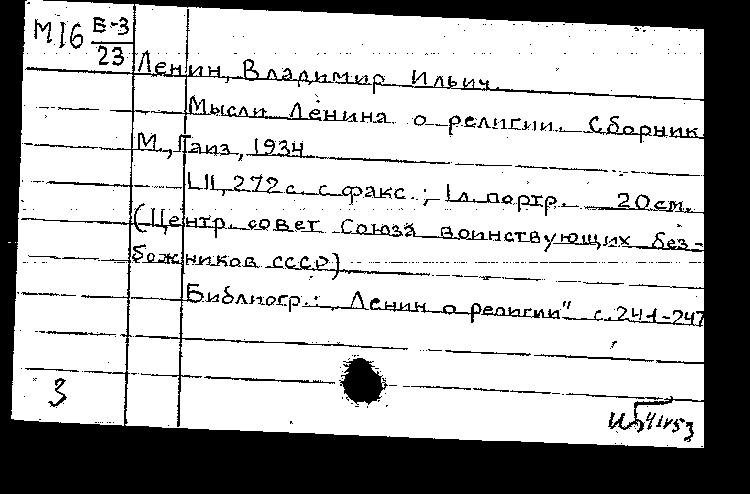 М16 Е-3
23
Ленин, Владимир Ильич.
Мысли Ленина о религии. Сборник.
М., Гаиз, 1934
LII, 272 с. с факс.; 1 л. портр. 20 см.
(Центр. совет Союза воинствующих без-
божников СССР)
Библиогр.: „Ленин о религии" с. 241-247
3